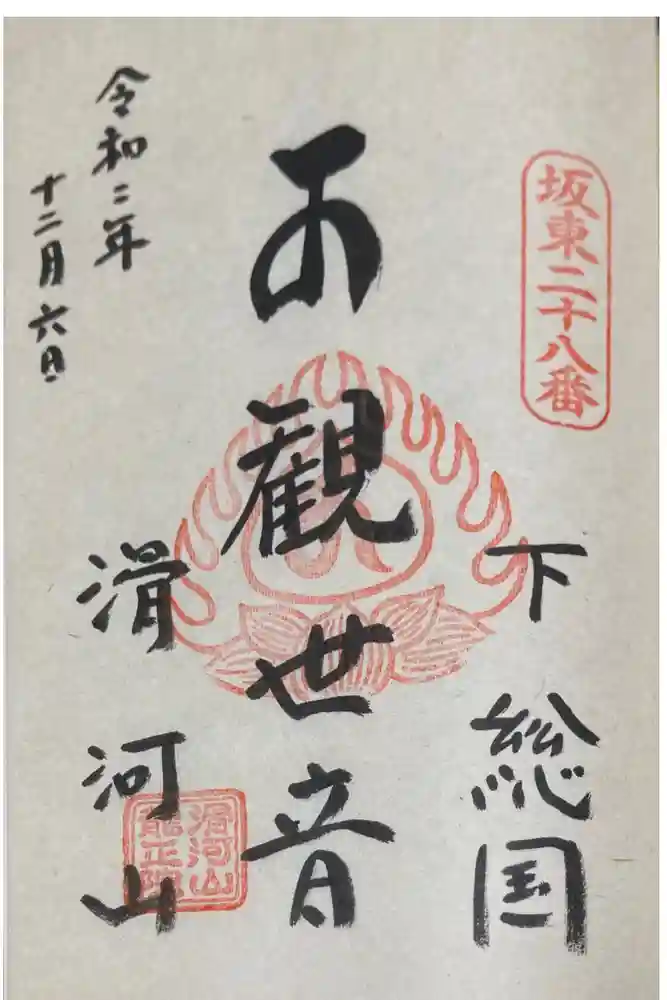 坂東二十八番
下総国
観世音
滑河山
滑河山
龍正院
令和二年
十二月六日